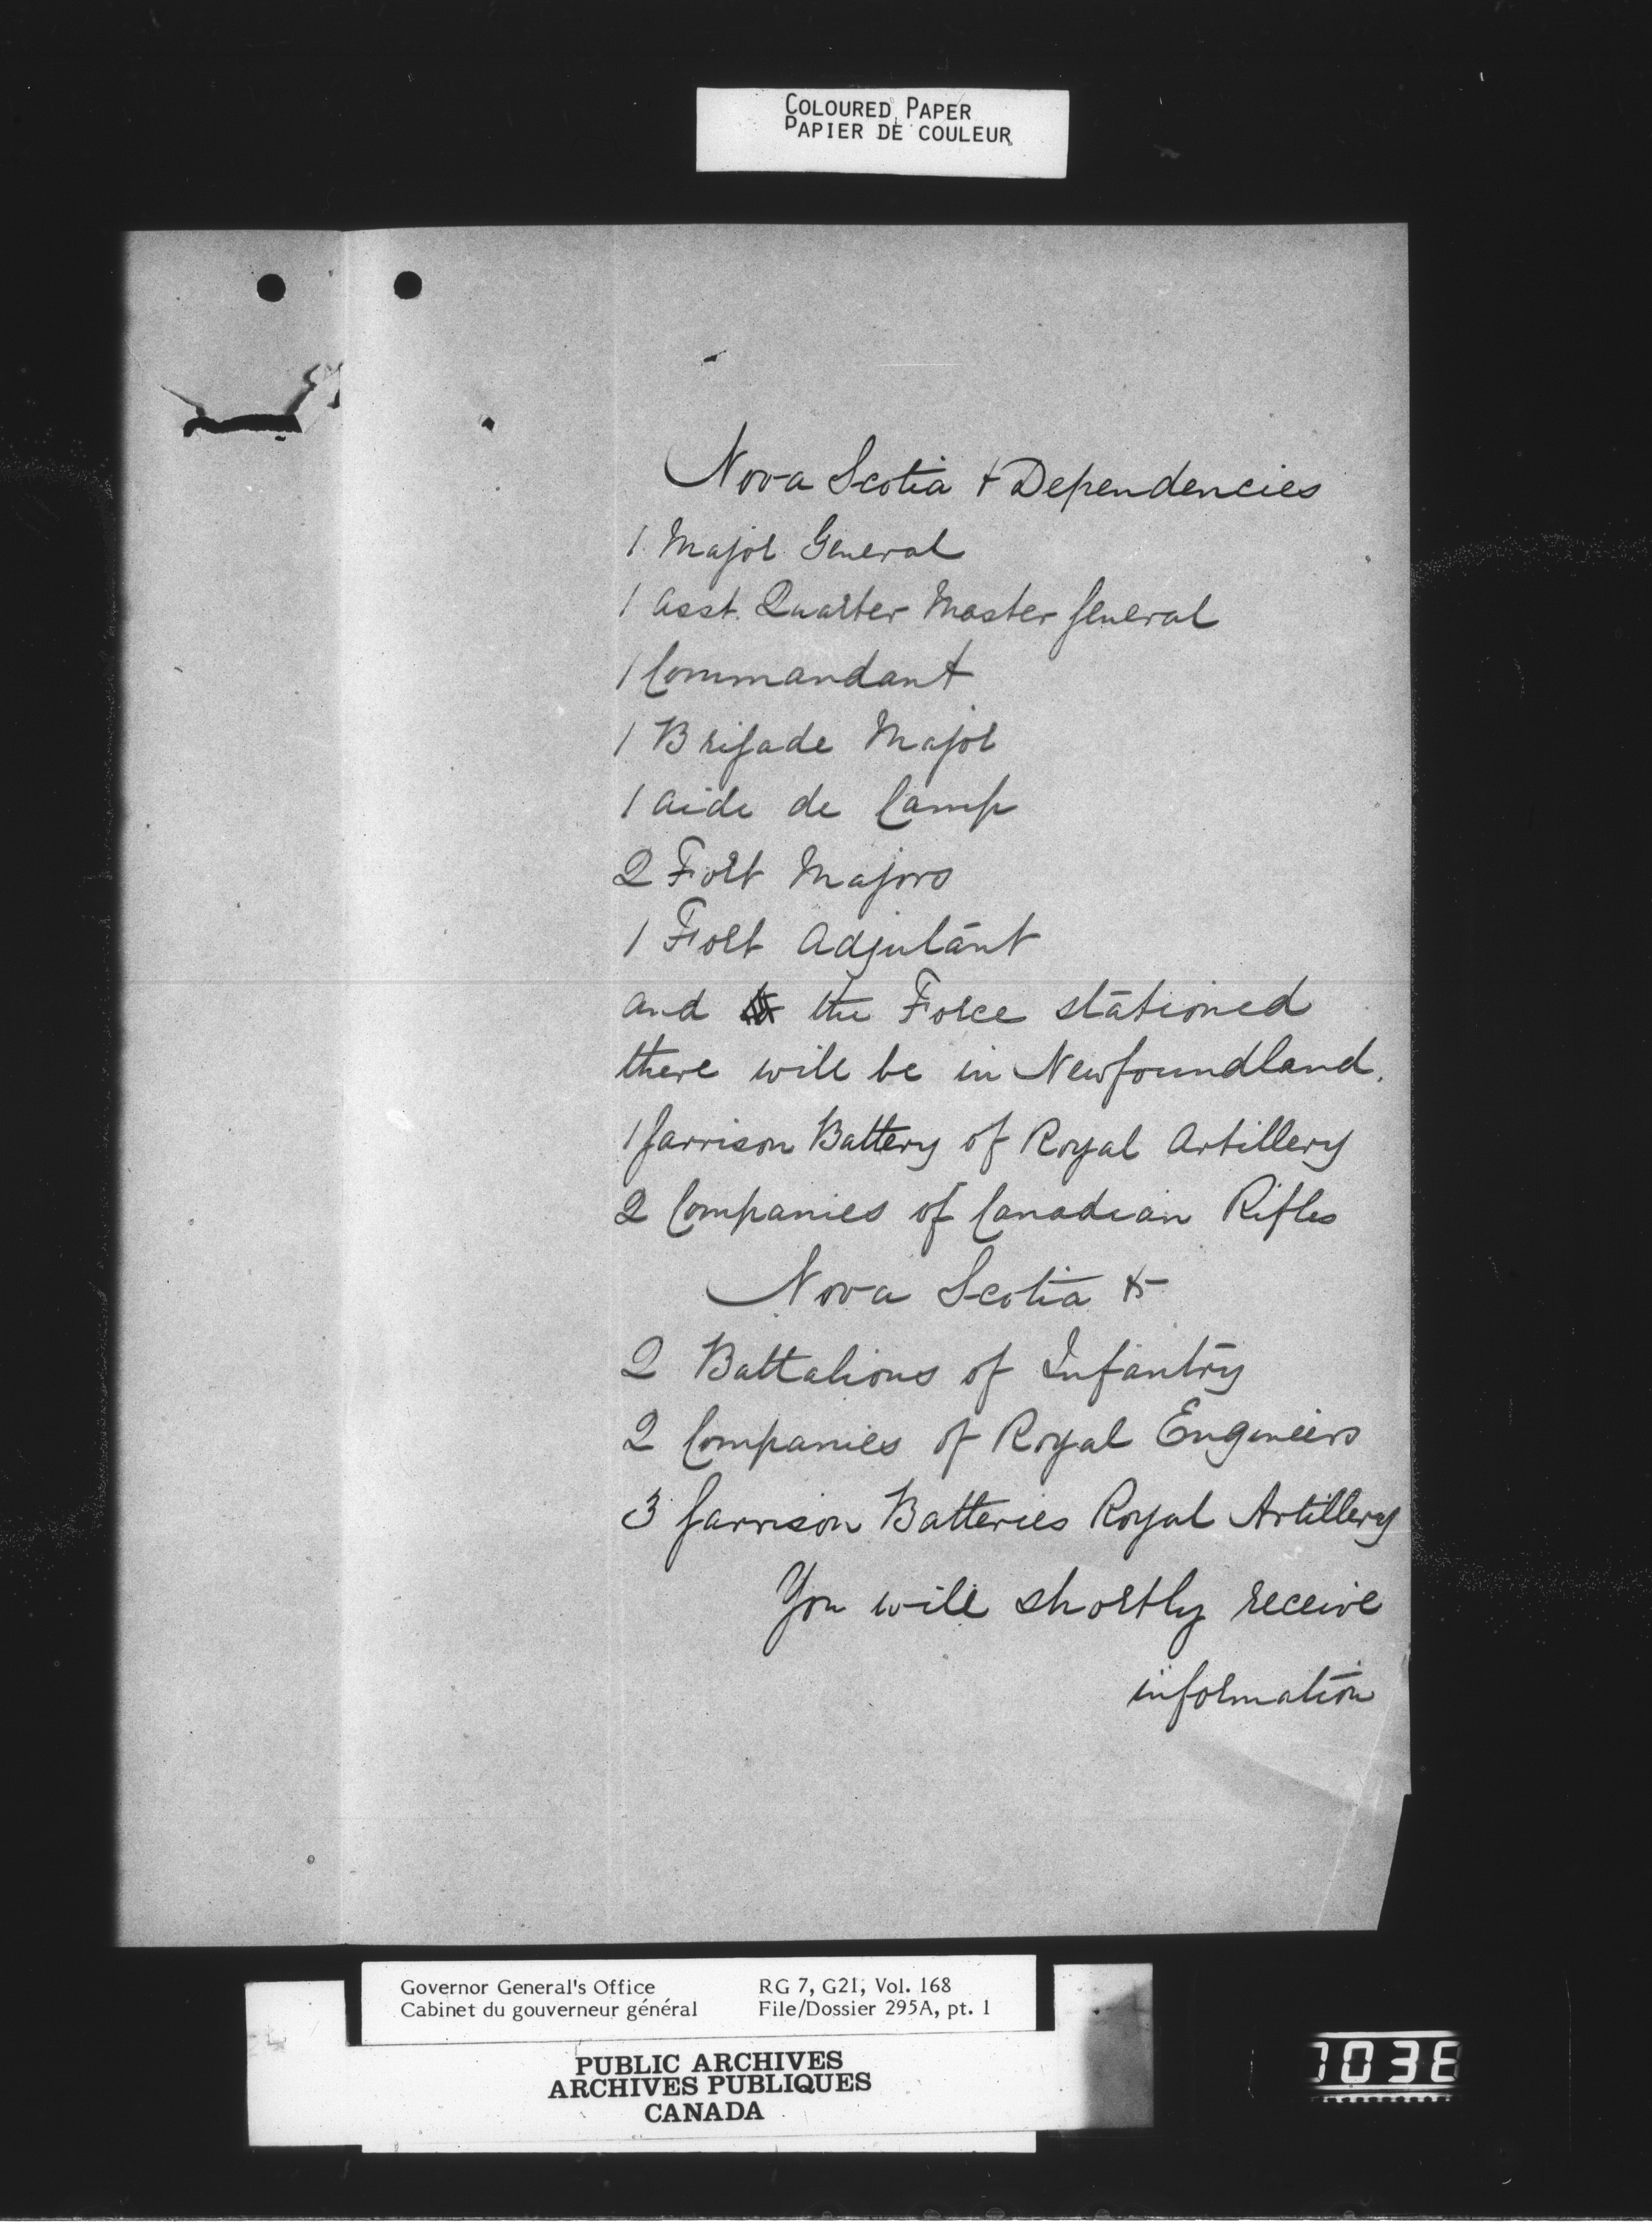 COLOURED PAPER
PAPIER DE COULEUR
Nova Scotia & Dependencies
1 Major General
1 Asst. Quarter Master General
1 Commandant
1 Brigade Major
1 Aide de Camp
2 Fort Majors
1 Fort Adjutant
and the Force stationed
there will be in Newfoundland.
1 Garrison Battery of Royal Artillery
2 Companies of Canadian Rifles
Nova Scotia &
2 Battalions of Infantry
2 Companies of Royal Engineers
3 Garrison Batteries Royal Artillery
You will shortly receive
information
Governor General's Office RG 7, G21, Vol. 168
Cabinet du gouverneur général File/Dossier 295A, pt. 1
PUBLIC ARCHIVES
ARCHIVES PUBLIQUES
CANADA